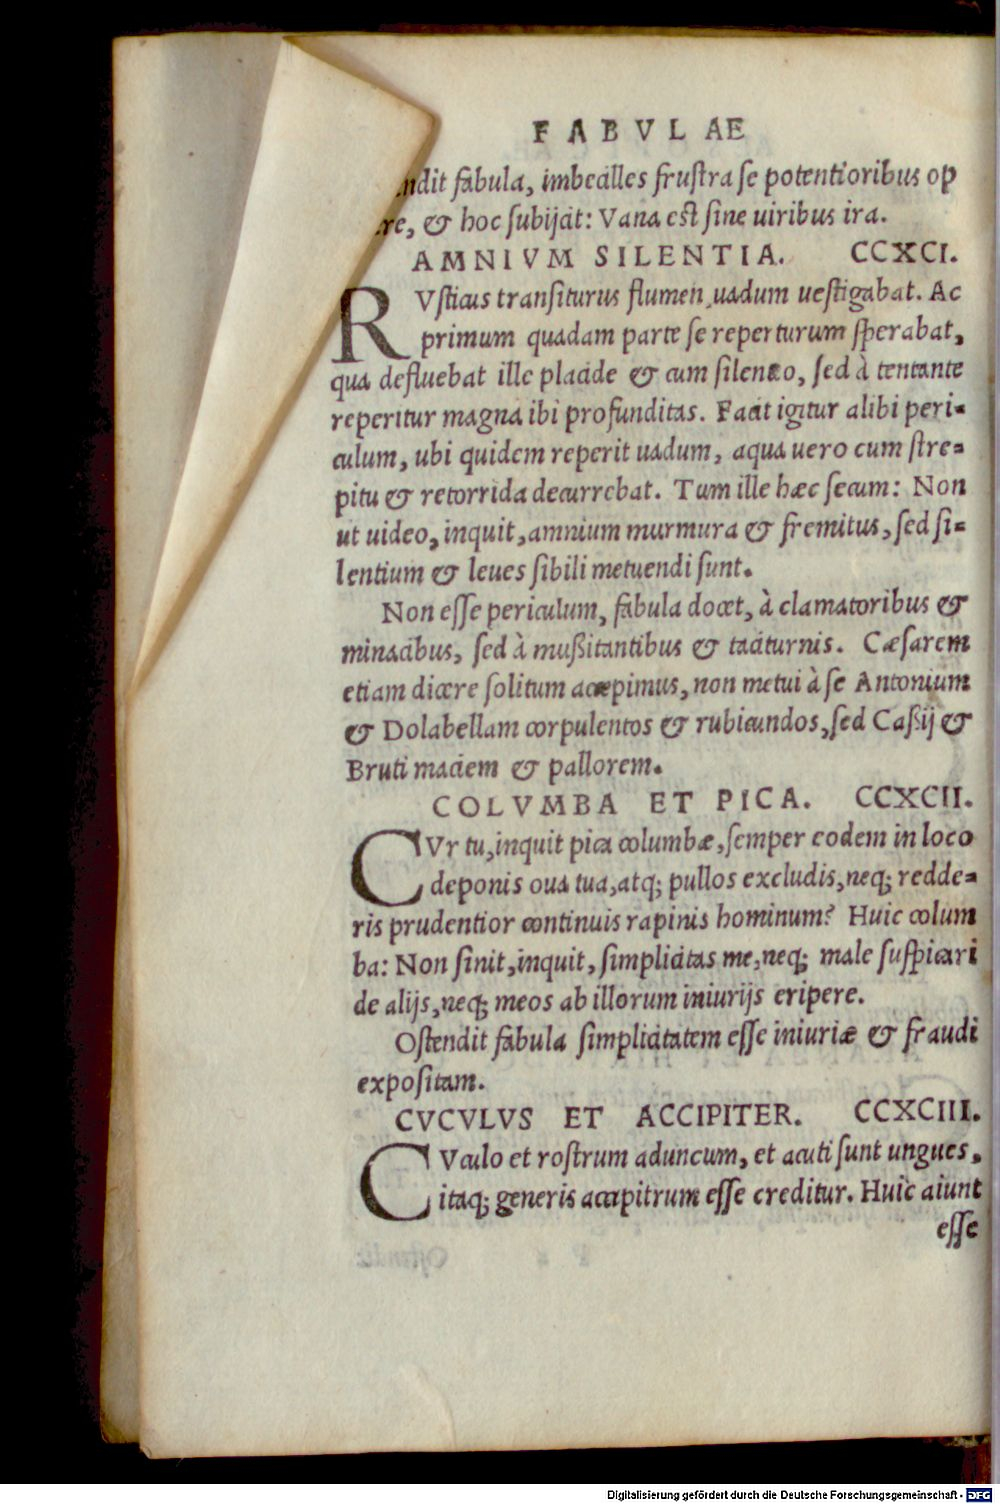 FABVLAE
ndit fabula, imbecilles frustra se potentioribus op
re, & hoc subijcit: Vana est sine uiribus ira.
AMNIVM SILENTIA. CCXCI.
RVsticus transiturus flumen, uadum uestigabat. Ac
primum quadam parte se reperturum sperabat,
qua defluebat ille placide & cum silentio, sed à tentante
reperitur magna ibi profunditas. Facit igitur alibi peri-
culum, ubi quidem reperit uadum, aqua uero cum stre-
pitu & retorrida decurrebat. Tum ille hæc secum: Non
ut uideo, inquit, amnium murmura & fremitus, sed si-
lentium & leues sibili metuendi sunt.
Non esse periculum, fabula docet, à clamatoribus &
minacibus, sed à mußitantibus & taciturnis. Cæsarem
etiam dicere solitum accepimus, non metui à se Antonium
& Dolabellam corpulentos & rubicundos, sed Caßij &
Bruti maciem & pallorem.
COLVMBA ET PICA. CCXCII.
CVr tu, inquit pica columbæ, semper eodem in loco
deponis oua tua, atq; pullos excludis, neq; redde-
ris prudentior continuis rapinis hominum? Huic colum
ba: Non sinit, inquit, simplicitas me, neq; male suspicari
de alijs, neq; meos ab illorum iniurijs eripere.
Ostendit fabula simplicitatem esse iniuriæ & fraudi
expositam.
CVCVLVS ET ACCIPITER. CCXCIII.
CVculo et rostrum aduncum, et acuti sunt ungues,
itaq; generis accipitrum esse creditur. Huic aiunt
esse
Digitalisierung gefördert durch die Deutsche Forschungsgemeinschaft - DFG